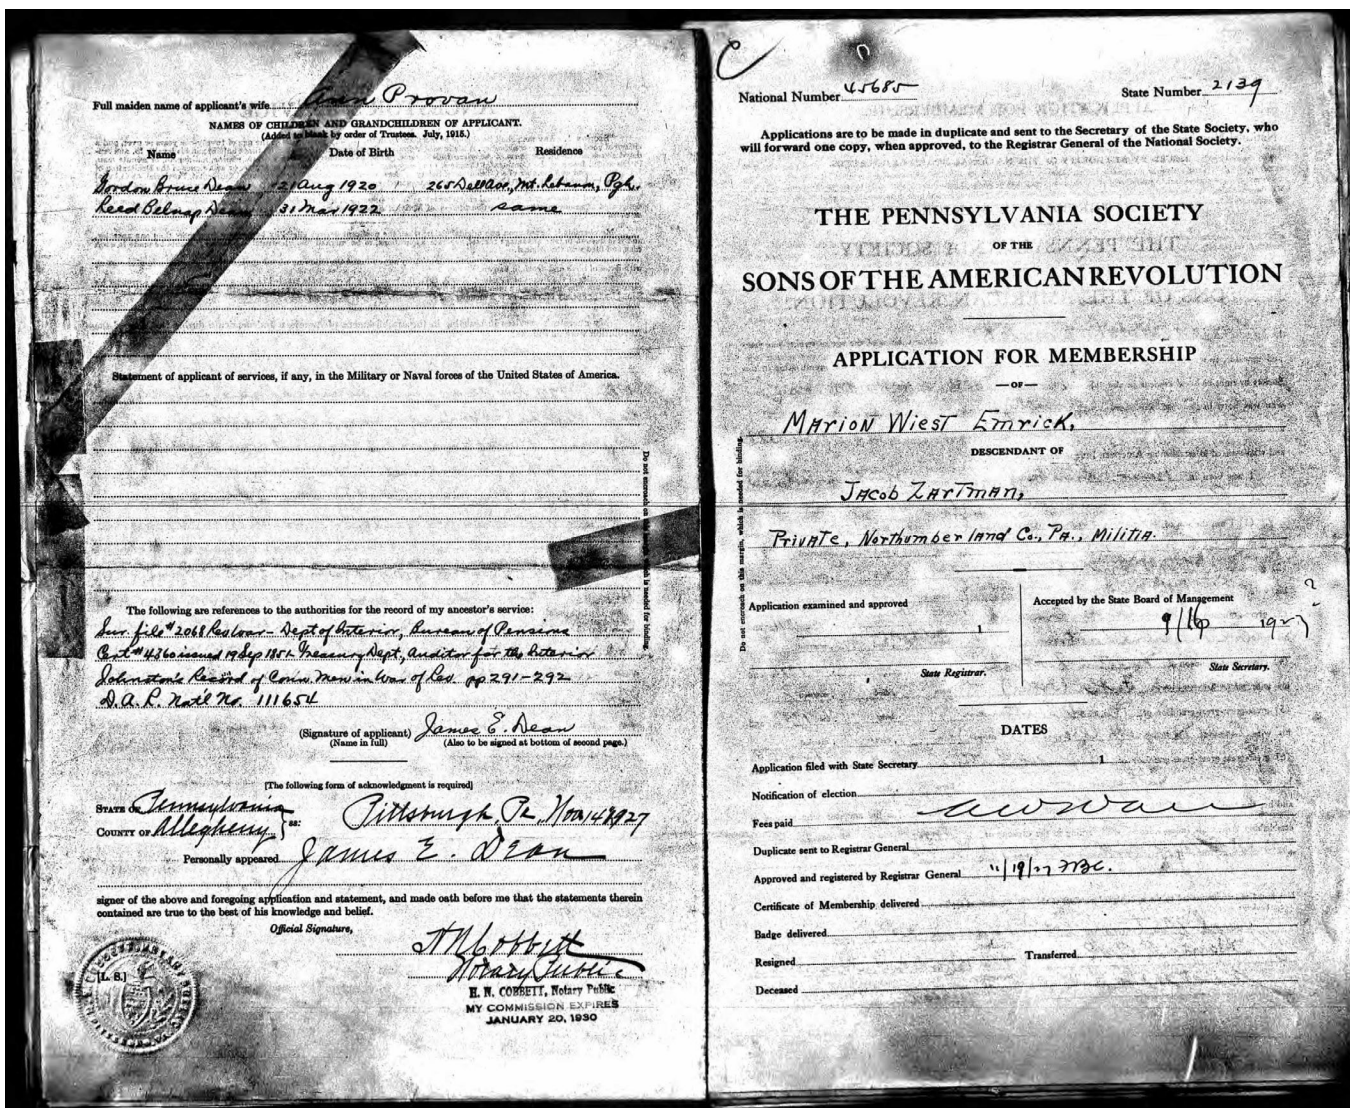 Full maiden name of applicant's wife Provan
NAMES OF CHILDREN AND GRANDCHILDREN OF APPLICANT.
(Added to blank by order of Trustees. July, 1915.)
Name Date of Birth Residence
Gordon Bruce Dean 21 Aug 1920 265 Dell Ave., Mt. Lebanon, Pgh.
Reed Belnap Dean 31 Mar 1922 same
Statement of applicant of services, if any, in the Military or Naval forces of the United States of America.
Do not encroach on this margin, which is needed for binding.
The following are references to the authorities for the record of my ancestor's service:
Sur. file #2068 Rev War - Dept of Interior, Bureau of Pensions
Cert #4360 issued 19 Sep 1851 Treasury Dept, Auditor for the Interior
Johnston's Record of Conn. Men in War of Rev. pp 291-292
D.A.R. Nat'l No. 111654
(Signature of applicant) James E. Dean
(Name in full) (Also to be signed at bottom of second page.)
[The following form of acknowledgment is required]
STATE OF Pennsylvania
COUNTY OF Allegheny } ss: Pittsburgh, Pa., Nov 14 1927
Personally appeared James E. Dean
signer of the above and foregoing application and statement, and made oath before me that the statements therein
contained are true to the best of his knowledge and belief.
Official Signature,
H N Cobbett
Notary Public
[L. S.]
H. N. COBBETT, Notary Public
MY COMMISSION EXPIRES
JANUARY 20, 1930
National Number 45685 State Number 2139
Applications are to be made in duplicate and sent to the Secretary of the State Society, who
will forward one copy, when approved, to the Registrar General of the National Society.
THE PENNSYLVANIA SOCIETY
OF THE
SONS OF THE AMERICAN REVOLUTION
APPLICATION FOR MEMBERSHIP
—OF—
Marion Wiest Emrick,
DESCENDANT OF
Jacob Zartman,
Private, Northumberland Co., Pa., Militia.
Do not encroach on this margin, which is needed for binding.
Application examined and approved
1
State Registrar.
Accepted by the State Board of Management
9/16 1927 ?
State Secretary.
DATES
Application filed with State Secretary 1
Notification of election
Fees paid
Duplicate sent to Registrar General
Approved and registered by Registrar General 11/19/27 FBC.
Certificate of Membership delivered
Badge delivered
Resigned Transferred
Deceased